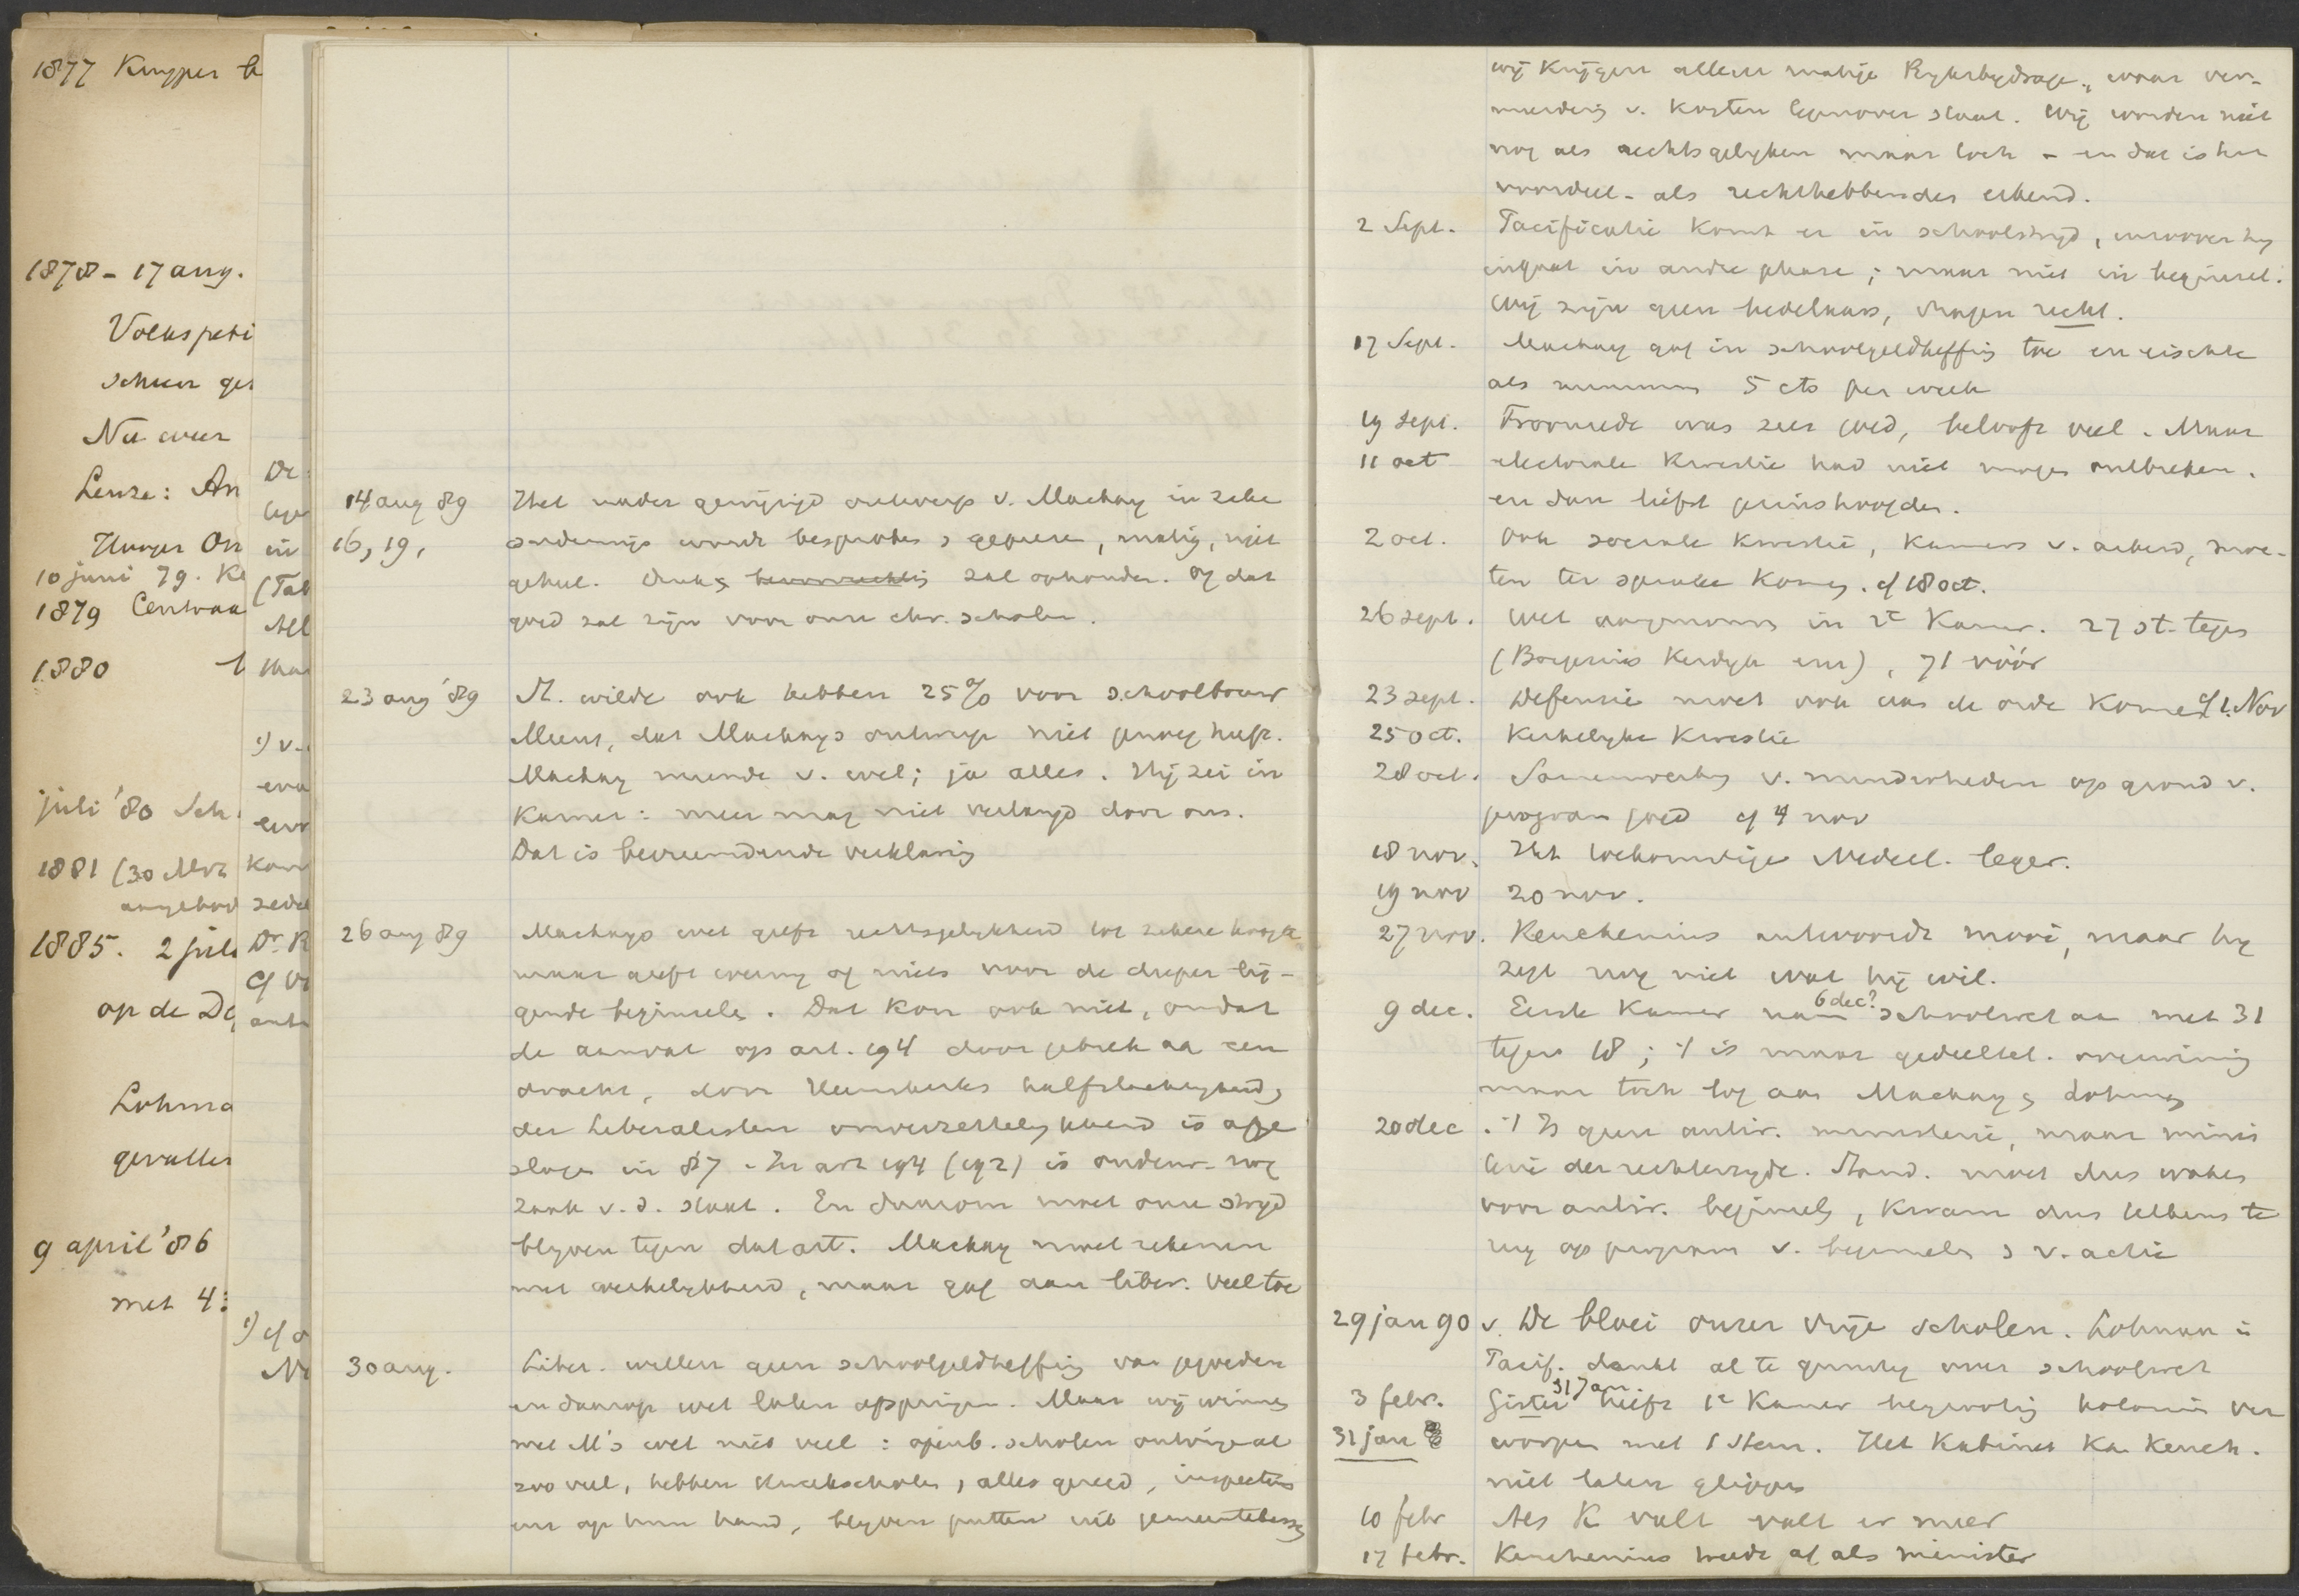 1877 Kuyper
1878 - 17 aug.
Volkspeti
Nu weer
Leuze: An
10 juni 79.
1879 Centraa
1880
juli '80 Sch
1881 (30
1885. 2 juli
op de De
Lohma
gevallen
9 april '86
met 4
De
in
(Tab
All
1) v.
eeuw
kom
Dr. R
cf
1) cf
14 aug 89 Het nader gewijzigd ontwerp v. Mackay in zake
16, 19, onderwijs wordt besproken & geprezen, matig, niet
geheel. Druk & bevoorrechting zal ophouden. Of dat
goed zal zijn voor onze chr. scholen.
23 aug '89 St. wilde ook hebben 25% voor schoolbouw
Meent, dat Mackays ontwerp niet genoeg heeft.
Mackay meende v. wel; ja alles. Hij zei in
Kamer: meer mag niet verlangd door ons.
Dat is bevreemdende verklaring
26 aug 89 Mackays wet geeft rechtsgelijkheid tot zekere hoogte
maar geeft weinig of niets voor de dieper lig-
gende beginselen. Dat kon ook niet, omdat
de aanval op art. 194 door gebrek aan een
dracht, door Heemskerks halfslachtigheid &
der Liberalisten onverzettelijkheid is afge
slagen in 87. In art 194 (192) is onderw. nog
zaak v. d. staat. En daarom moet onze strijd
blijven tegen dat art. Mackay moet rekenen
met werkelijkheid, maar gaf aan liber. veel toe
30 aug. Liber. willen geen schoolgeldheffing van gegoeden
en daarop wet laten afspringen. Maar wij winnen
met M's wet niet veel: openb. scholen ontvingen al
zoo veel, hebben kweekscholen, alles gereed, inspecteurs
enz op hun hand, blijven putten uit gemeentebeurs
wij krijgen alleen matige Rijksbijdrage, waar ver-
meerdering v. kosten tegenover staat. Wij worden niet
nog als rechtsgelijken maar toch - en dat is het
voordeel - als rechthebbenden erkend.
2 Sept. Pacificatie komt er in schoolstrijd, waarover hij
ingaat in andre phase; maar niet in beginsel.
Wij zijn geen bedelaars, vragen recht.
17 Sept. Mackay gaf in schoolgeldheffing toe en eischte
als minimum 5 cts per week
19 Sept. Troonrede was zeer goed, belooft veel. Maar
11 oct electorale kwestie had niet mogen ontbreken.
en dan liefst gezinshoofden.
2 oct. Ook sociale kwestie, kamers v. arbeid, moe-
ten ter sprake komen. cf 18 oct.
26 sept. Wet aangenomen in 2e Kamer. 27 st. tegen
(Borgesius Kerdijk enz), 71 vóór
23 sept. Defensie moet ook aan de orde komen cf 1. Nov
25 oct. Kerkelijke kwestie
28 oct. Samenwerking v. minderheden op grond v.
program goed cf 4 nov
18 nov. Het toekomstige Nederl. leger.
19 nov 20 nov.
27 nov. Keuchenius antwoordt mooi, maar hij
zegt nog niet wat hij wil.
6 dec?
9 dec. Eerste Kamer nam schoolwet aan met 31
tegen 18; 't is maar gedeeltel. overwinning
maar toch lof aan Mackay & Lohman
20 dec. 't Is geen antir. ministerie, maar minis
terie der rechterzijde. Stand. moet dus waken
voor antir. beginsels, kwam dus telkens te
rug op program v. beginselen & v. actie
29 jan 90 v. De bloei onzer vrije scholen. Lohman in
Pacif. denkt al te gunstig over schoolwet
31 Jan
3 febr. Gister heeft 1e Kamer begrooting koloniën ver
31 jan worpen met 1 stem. Het Kabinet ka Keuch.
niet laten glippen
10 febr Als K valt valt er meer
17 febr. Keuchenius treedt af als minister